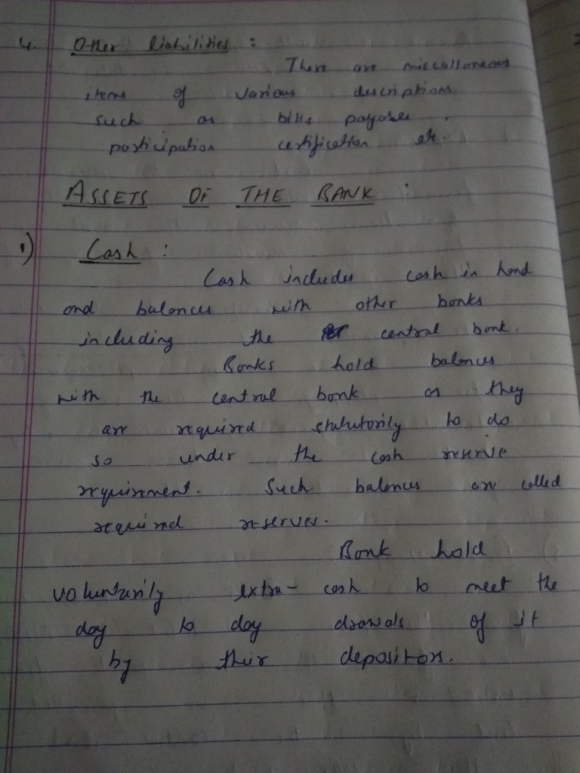 4. Other liabilities :
There are miscellaneous
items of various descriptions
such as bills payable
participation certification etc.
ASSETS OF THE BANK :
1) Cash :
Cash includes cash in hand
and balances with other banks
including the central bank.
Banks hold balances
with the central bank as they
are required statutorily to do
so under the cash reserve
requirement. Such balances are called
required reserves.
Bank hold
voluntarily extra- cash to meet the
day to day drawals of it
by their depositors.